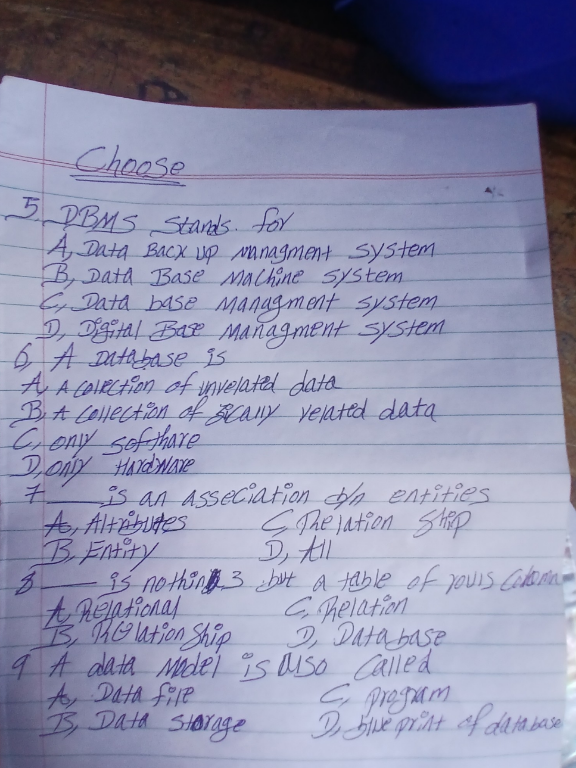 Choose
5 DBMS stands for
A, Data Back up managment system
B, Data Base Machine system
C, Data base managment system
D, Digital Base managment system
6, A Database is
A, A collection of unrelated data
B, A collection of related data
C, only softhare
D, only Hardware
7 ___ is an asseciation b/n entities
A, Altributes C, The lation Ship
B, Entity D, All
8 ___ is nothing but a table of rows Column
A, Relational C, Relation
B, Relation Ship D, Database
9 A data Model is also Called
A, Data file C, program
B, Data Storage D, blue print of database